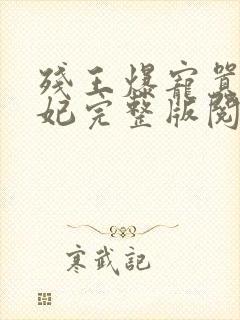 残王爆寵囂
妃完整版閱
寒武記